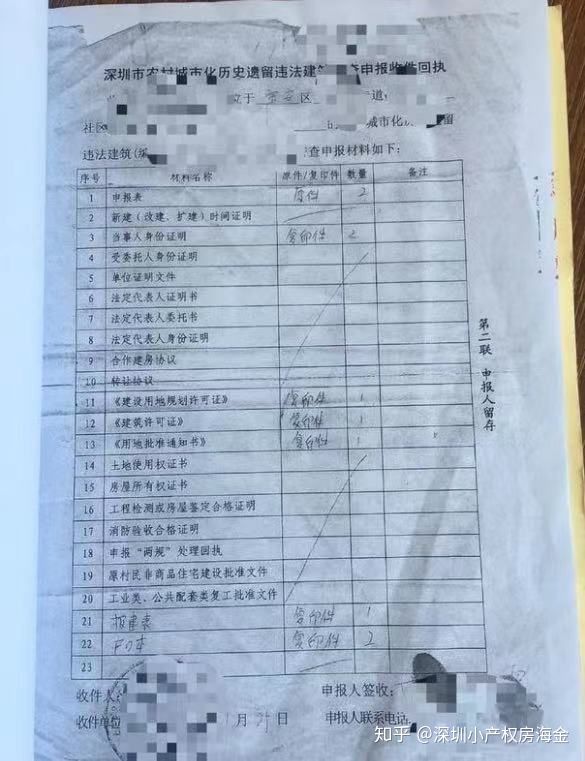 深圳市农村城市化历史遗留违法建筑 查申报收件回执
位于 宝安区 道
社区 城市化 留
违法建筑( 查申报材料如下:
序号 材料名称 原件/复印件 数量 备注
1 申报表 原件 2
2 新建(改建、扩建)时间证明
3 当事人身份证明 复印件 2
4 受委托人身份证明
5 单位证明文件
6 法定代表人证明书
7 法定代表人委托书
8 法定代表人身份证明
9 合作建房协议
10 转让协议
11 《建设用地规划许可证》 复印件 1
12 《建筑许可证》 复印件 1
13 《用地批准通知书》 复印件 1
14 土地使用权证书
15 房屋所有权证书
16 工程检测或房屋鉴定合格证明
17 消防验收合格证明
18 申报“两规”处理回执
19 原村民非商品住宅建设批准文件
20 工业类、公共配套类复工批准文件
21 报建表 复印件 1
22 户口本 复印件 2
23
第二联 申报人留存
收件人 申报人签收:
收件单位 月 日 申报人联系电话
知乎 @深圳小产权房海金